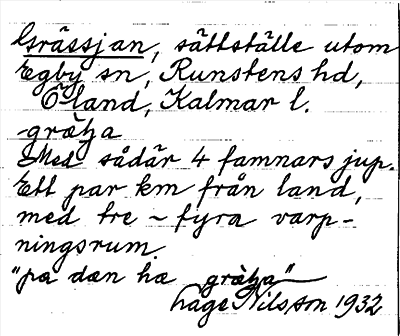 Grässjan, sättställe utom
Egby sn, Runstens hd,
Öland, Kalmar l.
-gräʃa
Med sådär 4 famnars jup.
Ett par km från land,
med tre ~ fyra varp-
ningsrum.
"på dæn hæ gräʃa"
Låge Nilsson 1932